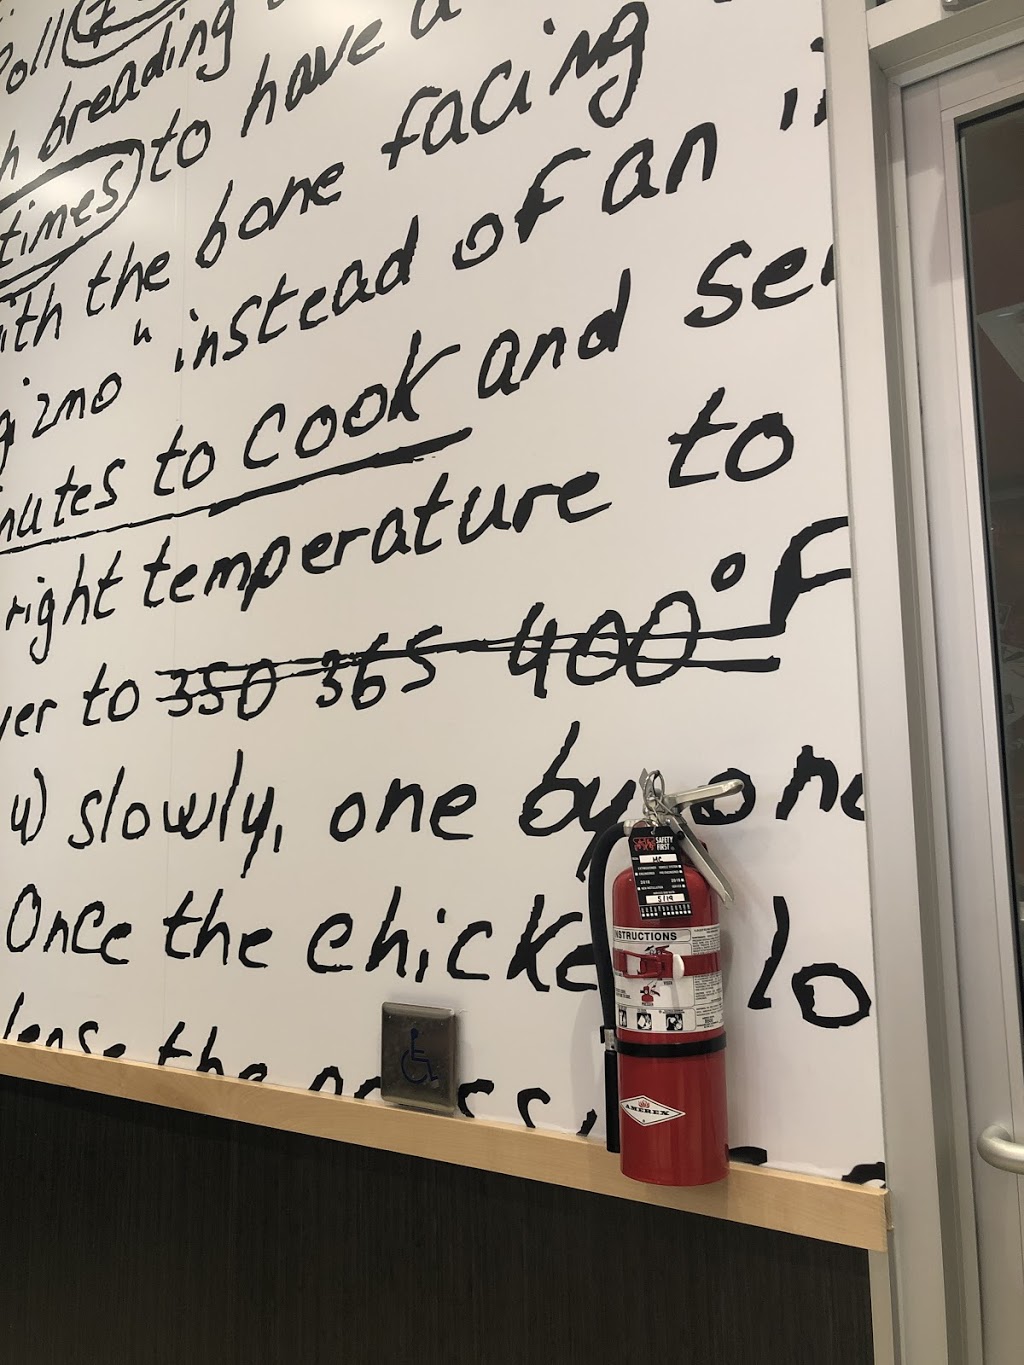 Poll
breading
times to have a
ith the bone facing
gizmo " instead of an "
nutes to Cook and ser
right temperature to
ver to 350 365 400°F
slowly, one by one
Once the chicke lo
the
SAFETY FIRST
5/19
INSTRUCTIONS
AMEREX